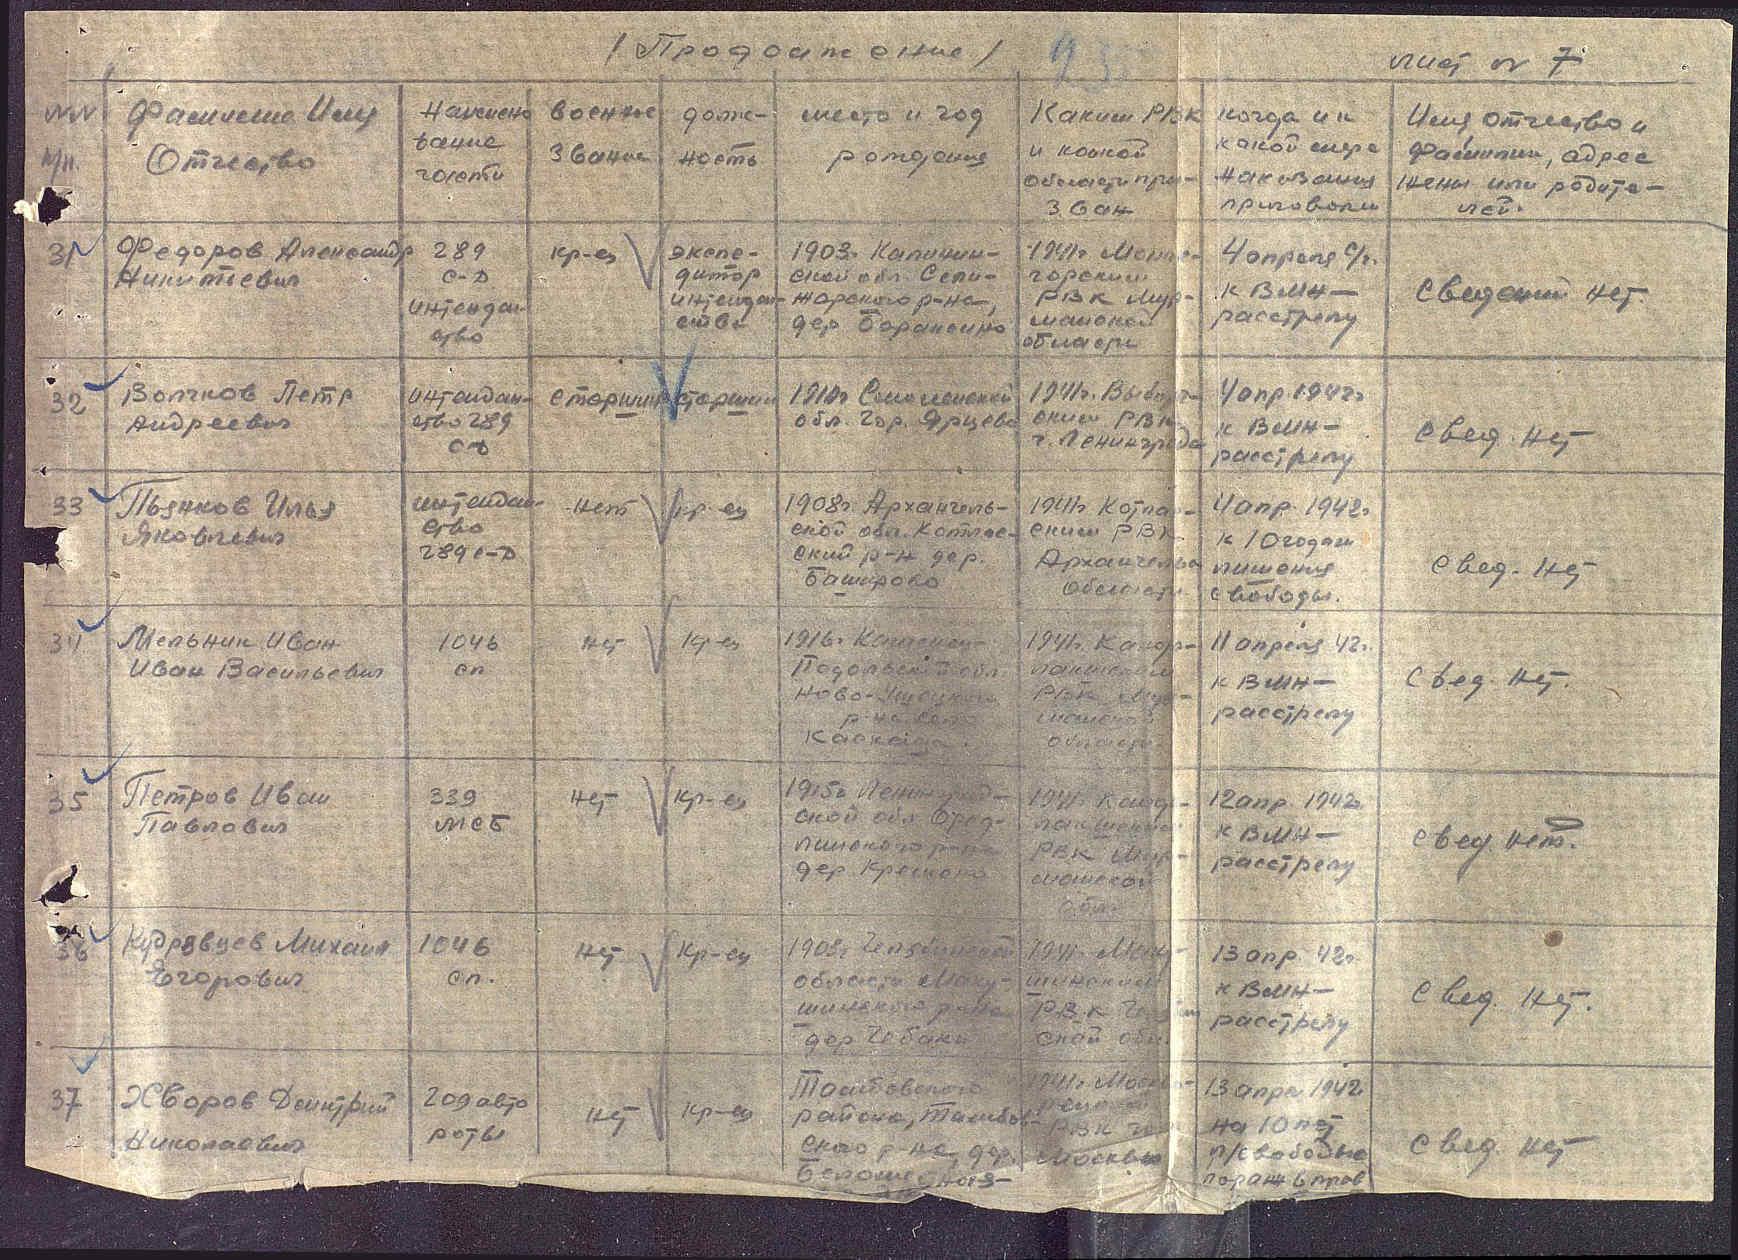 / Продолжение / 93 лист № 7
№№ п/п.
Фамилия Имя
Отчество
Наимено
вание
части
военное
звание
долж-
ность
место и год
рождения
Каким РВК
и какой
области при-
зван
когда и к
какой мере
наказания
приговорен
Имя отчество и
фамилии, адрес
жены или родите-
лей.
31
Федоров Александр
Никитьевич
289
с-д
интендан-
ство
кр-ец
экспе-
дитор
интендан-
ства
1903г. Калинин-
ской обл. Сели-
жарского р-на,
дер
1941г. Монче-
горским
РВК Мур-
манской
области
4 апреля с/г.
к ВМН-
расстрелу
Сведений нет.
32
Волчков Петр
Андреевич
интендан-
ство 289
с-д
старшина
старшина
1910г. Смоленской
обл. гор. Ярцево
1941г. Выборг-
ским РВК
г. Ленинграда
4 апр. 1942г.
к ВМН-
расстрелу
Свед. нет
33
Пьянков Илья
Яковлевич
интендан-
ство
289 с-д
нет
кр-ец
1908г. Архангель-
ской обл. Котлас-
ский р-н дер.
Баширово
1941г. Котлас-
ским РВК
Архангельск
области
4 апр. 1942г.
к 10 годам
лишения
свободы.
Свед. нет
34
Мельник Иван
Иван Васильевич
1046
сп
нет
кр-ец
1916г. Каменец-
Подольской обл.
Ново-Ушицкого
р-на село
1941г. Канда-
лакшским
РВК Мур-
манской
области
11 апреля 42г.
к ВМН-
расстрелу
Свед. нет.
35
Петров Иван
Павлович
339
МСБ
нет
кр-ец
1915г. Ленинград-
ской обл.
р-на
дер
1941г. Канда-
лакшским
РВК Мур-
манской
обл.
12 апр. 1942г.
к ВМН-
расстрелу
Свед. нет.
36
Кудрявцев Михаил
Егорович
1046
сп.
нет
кр-ец
1903г. Челябинской
области Маку-
шинского р-на
дер Чебаки
1941г. Маку-
шинским
РВК
ской обл.
13 апр. 42г.
к ВМН-
расстрелу
Свед. нет.
37
Хворов Дмитрий
Николаевич
209 авто
роты
нет
кр-ец
Тамбовского
района, Тамбов-
ского р-на, дер.
1941г.
РВК гор
Москвы
13 апреля 1942г
на 10 лет
л/свободы
пораж в прав
Свед. нет